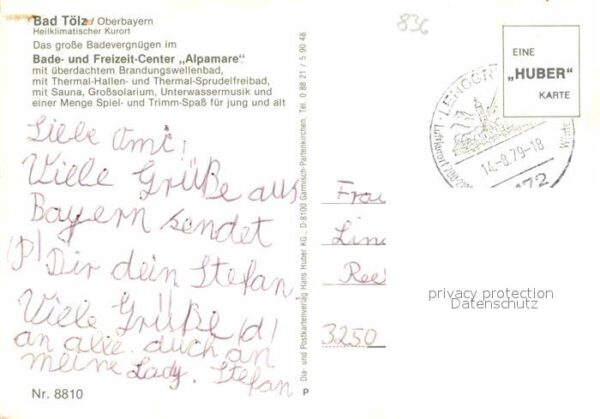 Bad Tölz / Oberbayern
Heilklimatischer Kurort
Das große Badevergnügen im
Bade- und Freizeit-Center „Alpamare"
mit überdachtem Brandungswellenbad,
mit Thermal-Hallen- und Thermal-Sprudelfreibad,
mit Sauna, Großsolarium, Unterwassermusik und
einer Menge Spiel- und Trimm-Spaß für jung und alt
Liebe Omi!
Viele Grüße aus
Bayern sendet
(p) Dir dein Stefan
Viele Grüße (d)
an alle. auch an
meine Lady. Stefan
Nr. 8810
Dia- und Postkartenverlag Hans Huber KG., D-8100 Garmisch-Partenkirchen, Tel. 0 88 21 / 5 90 48
P
836
EINE
„HUBER"
KARTE
14.-8.79-18
Luftkurort
Frau
3250
privacy protection
Datenschutz